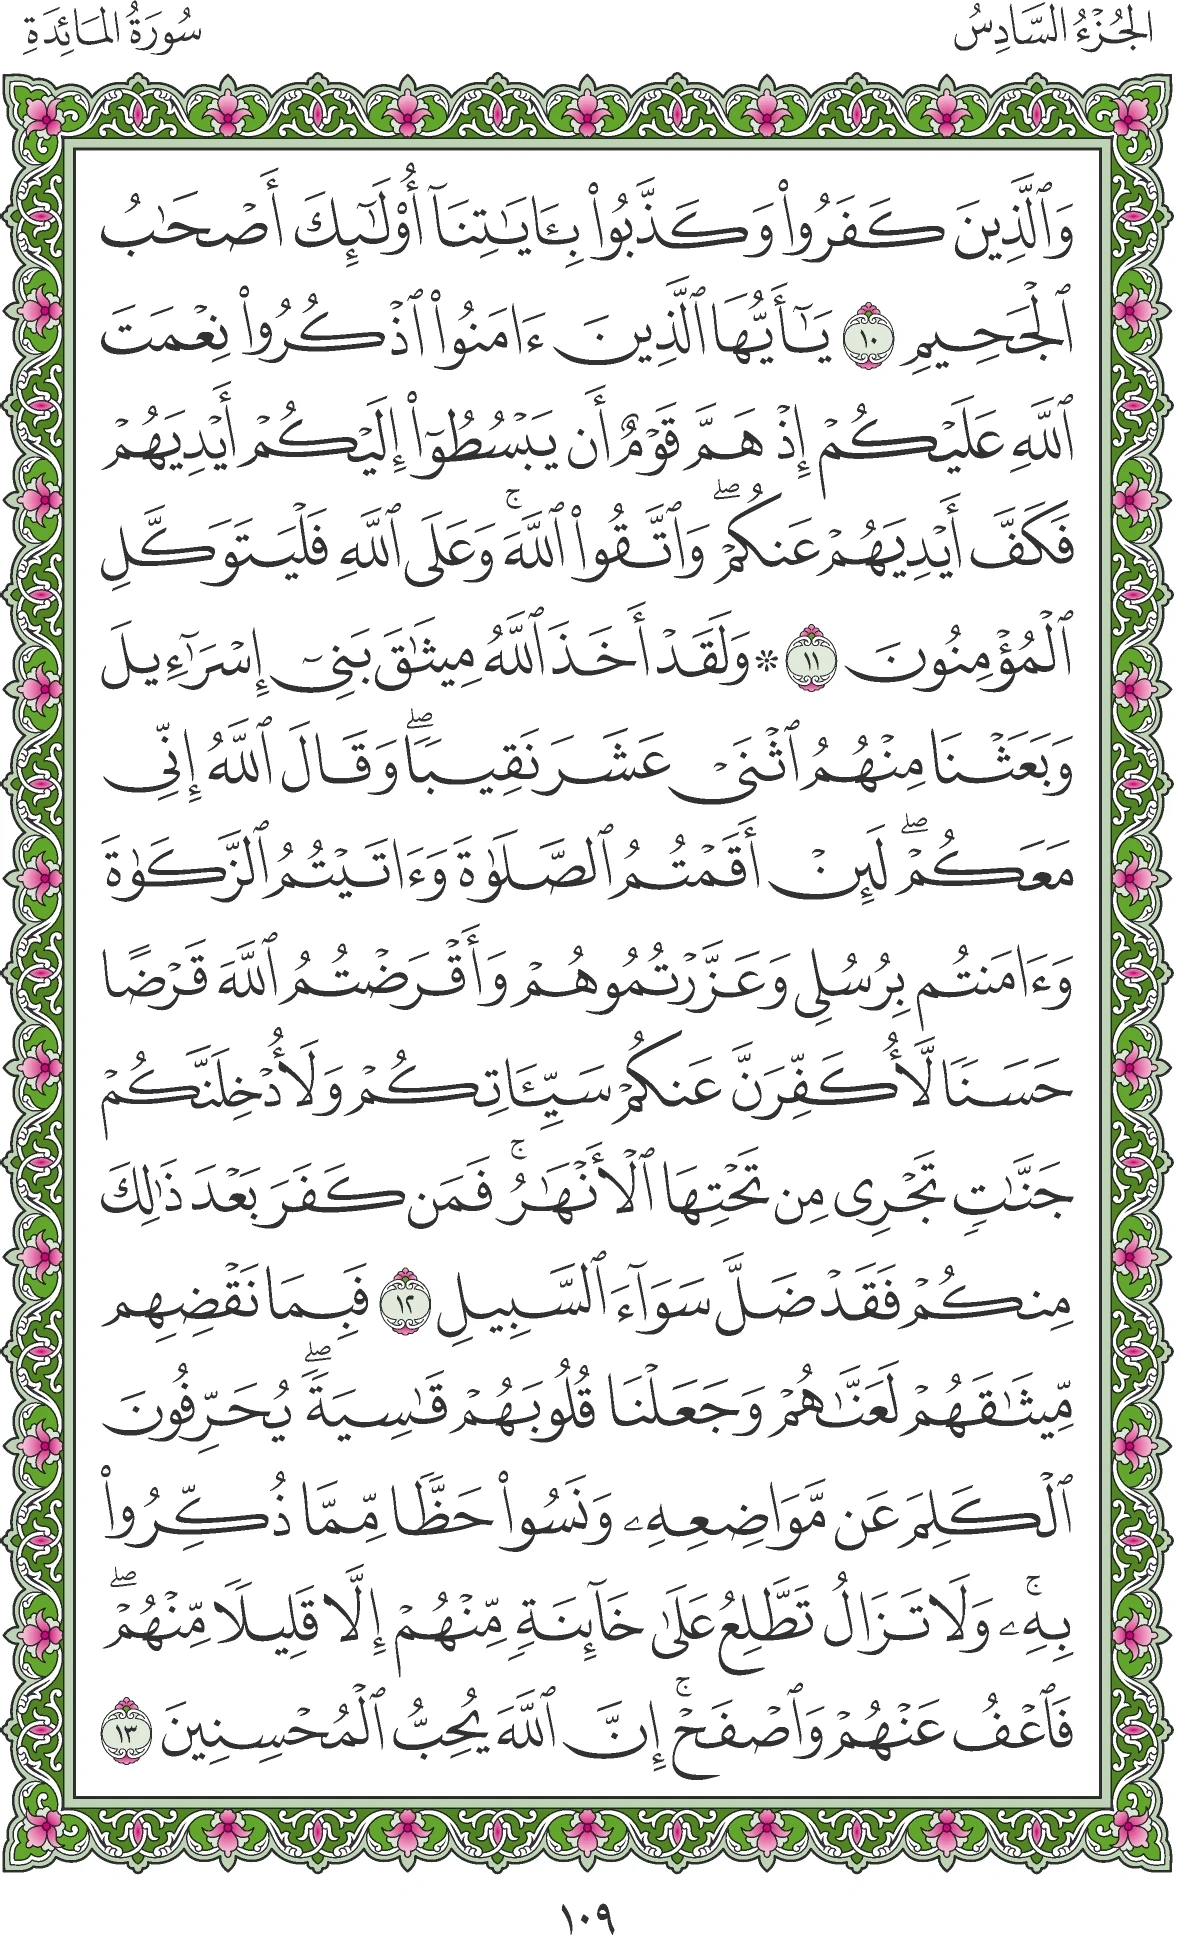 الجُزْءُ السَّادِسُ
سُورَةُ المَائِدَةِ
وَٱلَّذِينَ كَفَرُواْ وَكَذَّبُواْ بِـَٔايَٰتِنَآ أُوْلَٰٓئِكَ أَصْحَٰبُ
ٱلْجَحِيمِ ١٠ يَٰٓأَيُّهَا ٱلَّذِينَ ءَامَنُواْ ٱذْكُرُواْ نِعْمَتَ
ٱللَّهِ عَلَيْكُمْ إِذْ هَمَّ قَوْمٌ أَن يَبْسُطُوٓاْ إِلَيْكُمْ أَيْدِيَهُمْ
فَكَفَّ أَيْدِيَهُمْ عَنكُمْۖ وَٱتَّقُواْ ٱللَّهَۚ وَعَلَى ٱللَّهِ فَلْيَتَوَكَّلِ
ٱلْمُؤْمِنُونَ ١١ ۞ وَلَقَدْ أَخَذَ ٱللَّهُ مِيثَٰقَ بَنِيٓ إِسْرَٰٓءِيلَ
وَبَعَثْنَا مِنْهُمُ ٱثْنَيْ عَشَرَ نَقِيبًاۖ وَقَالَ ٱللَّهُ إِنِّي
مَعَكُمْۖ لَئِنْ أَقَمْتُمُ ٱلصَّلَوٰةَ وَءَاتَيْتُمُ ٱلزَّكَوٰةَ
وَءَامَنتُم بِرُسُلِي وَعَزَّرْتُمُوهُمْ وَأَقْرَضْتُمُ ٱللَّهَ قَرْضًا
حَسَنًا لَّأُكَفِّرَنَّ عَنكُمْ سَيِّـَٔاتِكُمْ وَلَأُدْخِلَنَّكُمْ
جَنَّٰتٍ تَجْرِي مِن تَحْتِهَا ٱلْأَنْهَٰرُۚ فَمَن كَفَرَ بَعْدَ ذَٰلِكَ
مِنكُمْ فَقَدْ ضَلَّ سَوَآءَ ٱلسَّبِيلِ ١٢ فَبِمَا نَقْضِهِم
مِّيثَٰقَهُمْ لَعَنَّٰهُمْ وَجَعَلْنَا قُلُوبَهُمْ قَٰسِيَةًۖ يُحَرِّفُونَ
ٱلْكَلِمَ عَن مَّوَاضِعِهِۦ وَنَسُواْ حَظًّا مِّمَّا ذُكِّرُواْ
بِهِۦۚ وَلَا تَزَالُ تَطَّلِعُ عَلَىٰ خَآئِنَةٍ مِّنْهُمْ إِلَّا قَلِيلًا مِّنْهُمْۖ
فَٱعْفُ عَنْهُمْ وَٱصْفَحْۚ إِنَّ ٱللَّهَ يُحِبُّ ٱلْمُحْسِنِينَ ١٣
١٠٩